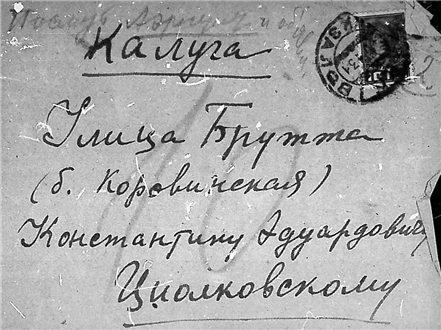 Калуга
Улица Брутта
(б. Коровинская)
Константину Эдуардовичу
Циолковскому